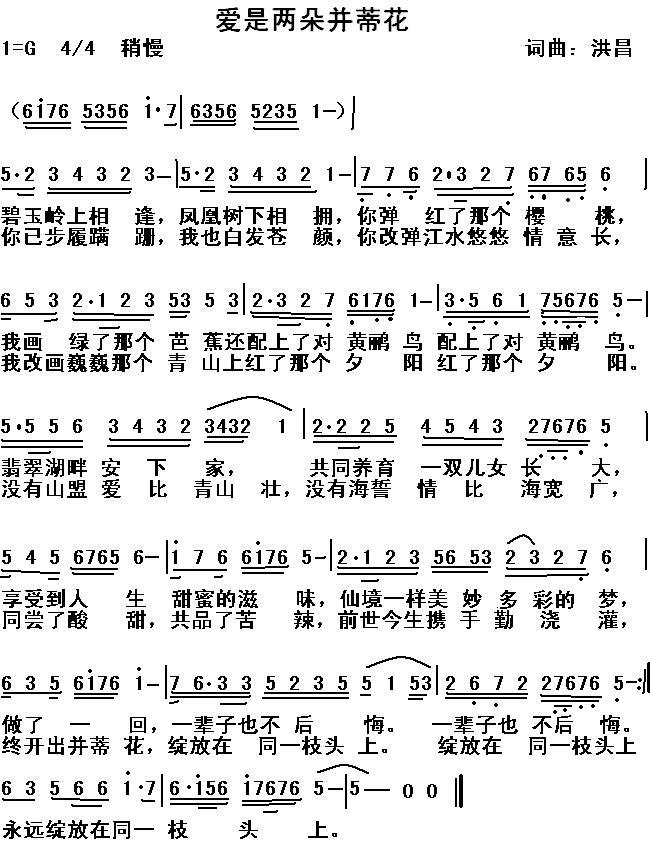 爱是两朵并蒂花
1=G 4/4 稍慢 词曲：洪昌
（6i76 5356 i·7|6356 5235 1-）|
5·2 3432 3-|5·2 3432 1-|7 7 6 2·327 67 65 6
碧玉岭上相 逢，凤凰树下相 拥，你弹 红了那个 樱 桃，
你已步履蹒 跚，我也白发苍 颜，你改弹江水悠悠 情 意 长，
6 5 3 2·123 53 5 3|2·327 6176 1-|3·561 75676 5-|
我画 绿了那个 芭 蕉还配上了对 黄鹂 鸟 配上了对 黄鹂 鸟。
我改画巍巍那个 青 山上红了那个 夕 阳 红了那个 夕 阳。
5·556 3432 3432 1|2·225 4543 27676 5|
翡翠湖畔 安 下 家， 共同养育 一双儿女 长 大，
没有山盟 爱 比 青山 壮，没有海誓 情 比 海宽 广，
5 4 5 6765 6-|i 7 6 6i76 5-|2·123 56 53 2 3 2 7 6|
享受到人 生 甜蜜的滋 味，仙境一样美 妙 多 彩的 梦，
同尝了酸 甜，共品了苦 辣，前世今生携 手 勤 浇 灌，
6 3 5 6i76 i-|7 6·3 3 5 2 3 5 5 1 53|2 6 7 2 27676 5-:|
做了 一 回，一辈子也不 后 悔。 一辈子也 不后 悔。
终开出并蒂 花，绽放在 同一枝头 上。 绽放在 同一枝头上
6 3 5 6 6 i·7|6·i56 i7676 5-|5- 0 0‖
永远绽放在同一 枝 头 上。